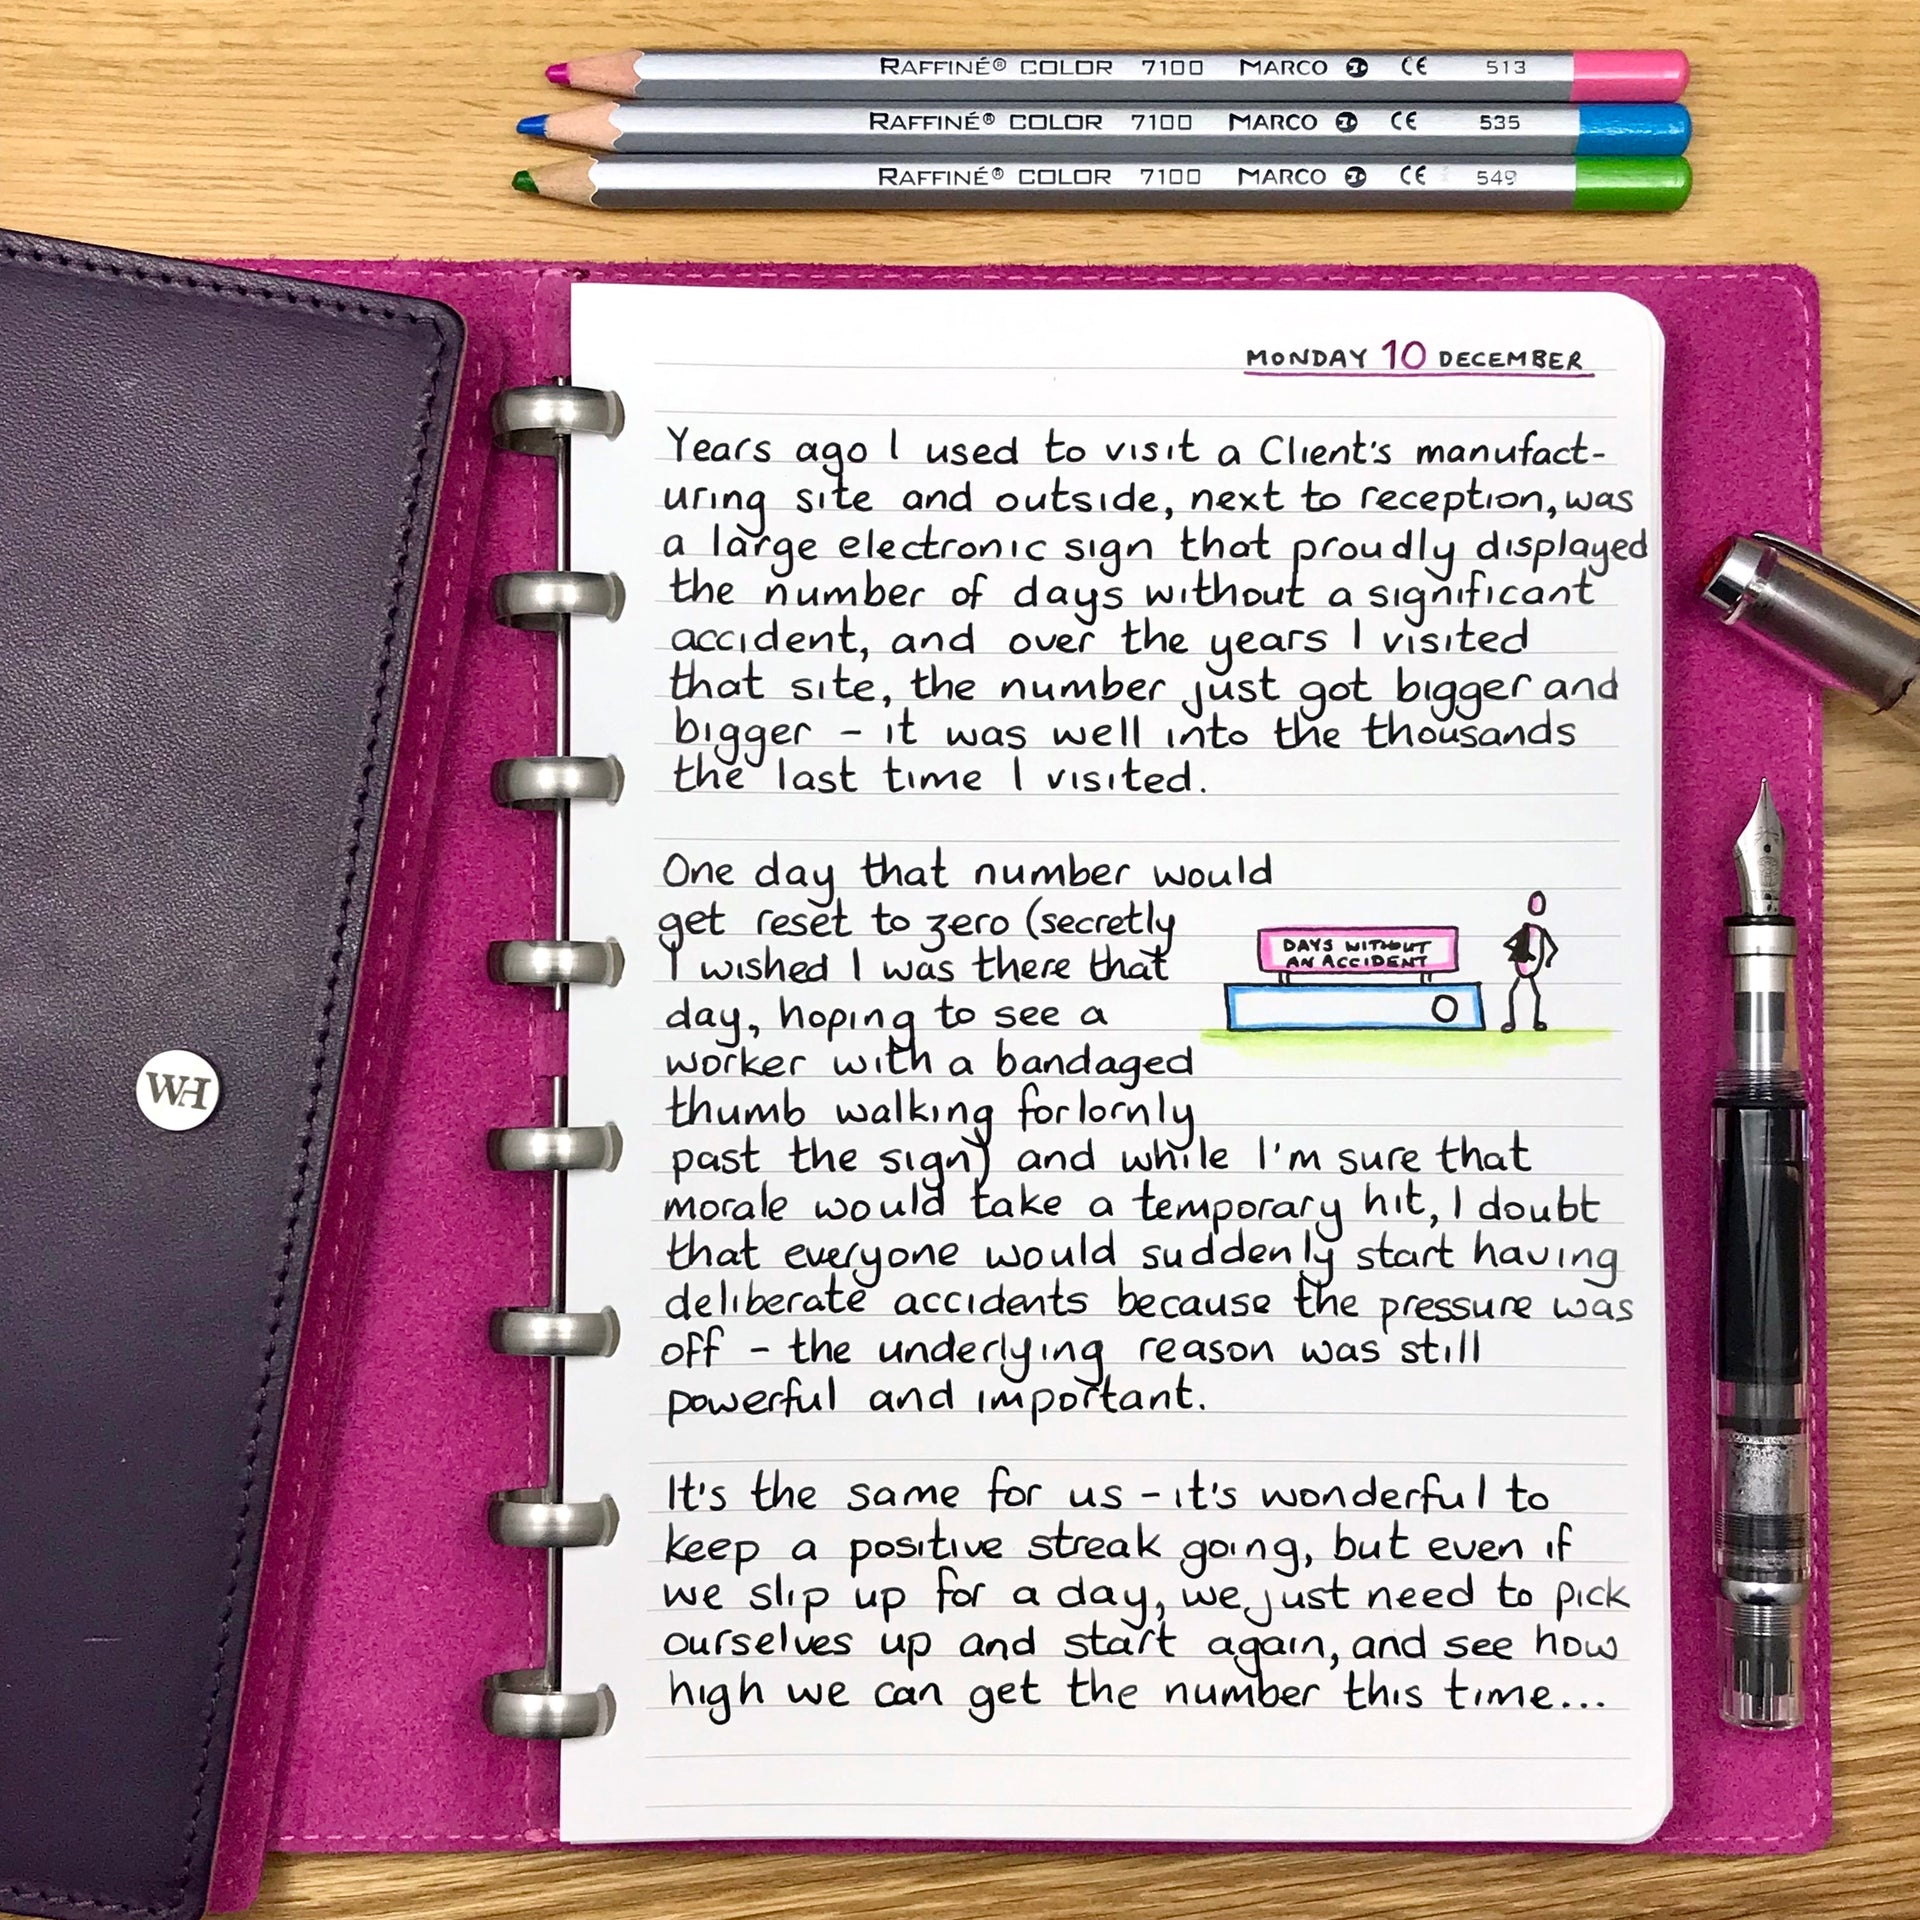 RAFFINÉ® COLOR 7100 MARCO CE 513
RAFFINÉ® COLOR 7100 MARCO CE 535
RAFFINÉ® COLOR 7100 MARCO CE 549
MONDAY 10 DECEMBER
Years ago I used to visit a Client's manufact-
uring site and outside, next to reception, was
a large electronic sign that proudly displayed
the number of days without a significant
accident, and over the years I visited
that site, the number just got bigger and
bigger - it was well into the thousands
the last time I visited.
One day that number would
get reset to zero (secretly
I wished I was there that
day, hoping to see a
worker with a bandaged
thumb walking forlornly
past the sign) and while I'm sure that
morale would take a temporary hit, I doubt
that everyone would suddenly start having
deliberate accidents because the pressure was
off - the underlying reason was still
powerful and important.
DAYS WITHOUT
AN ACCIDENT
0
It's the same for us - it's wonderful to
keep a positive streak going, but even if
we slip up for a day, we just need to pick
ourselves up and start again, and see how
high we can get the number this time...
WH